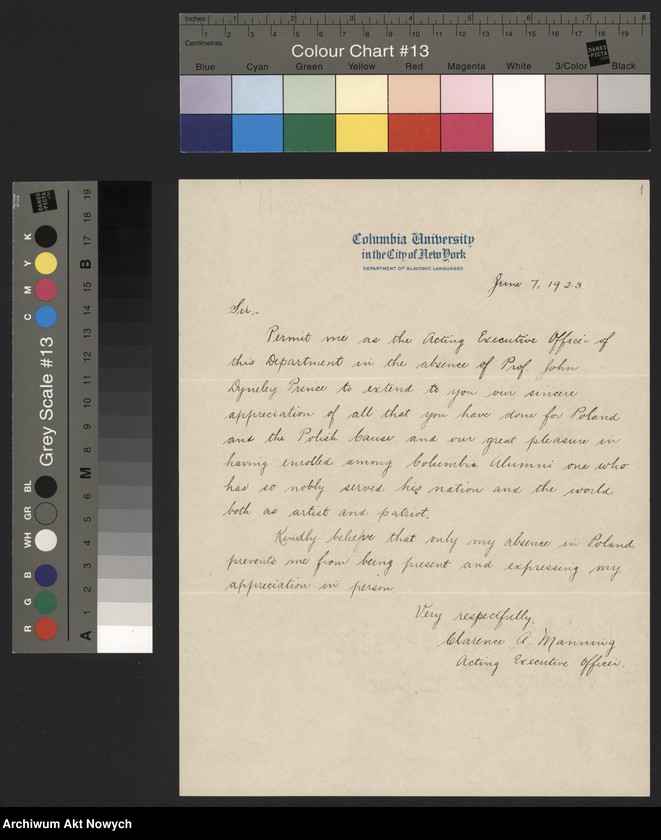 Inches 1 2 3 4 5 6 7 8
1 2 3 4 5 6 7 8 9 10 11 12 13 14 15 16 17 18 19
Centimetres
Colour Chart #13
DANES
PICTA
Blue Cyan Green Yellow Red Magenta White 3/Color Black
Grey Scale #13
DANES
PICTA
K
Y
M
C
BL
GR
WH
B
G
R
A 1 2 3 4 5 6 M 8 9 10 11 12 13 14 15 B 17 18 19
1
Columbia University
in the City of New York
DEPARTMENT OF SLAVONIC LANGUAGES
June 7, 1923
Sir,-
Permit me as the Acting Executive Officer of
this Department in the absence of Prof. John
Dyneley Prince to extend to you our sincere
appreciation of all that you have done for Poland
and the Polish Cause and our great pleasure in
having enrolled among Columbia Alumni one who
has so nobly served his nation and the world
both as artist and patriot.
Kindly believe that only my absence in Poland
prevents me from being present and expressing my
appreciation in person.
Very respectfully,
Clarence A. Manning
Acting Executive Officer.
Archiwum Akt Nowych